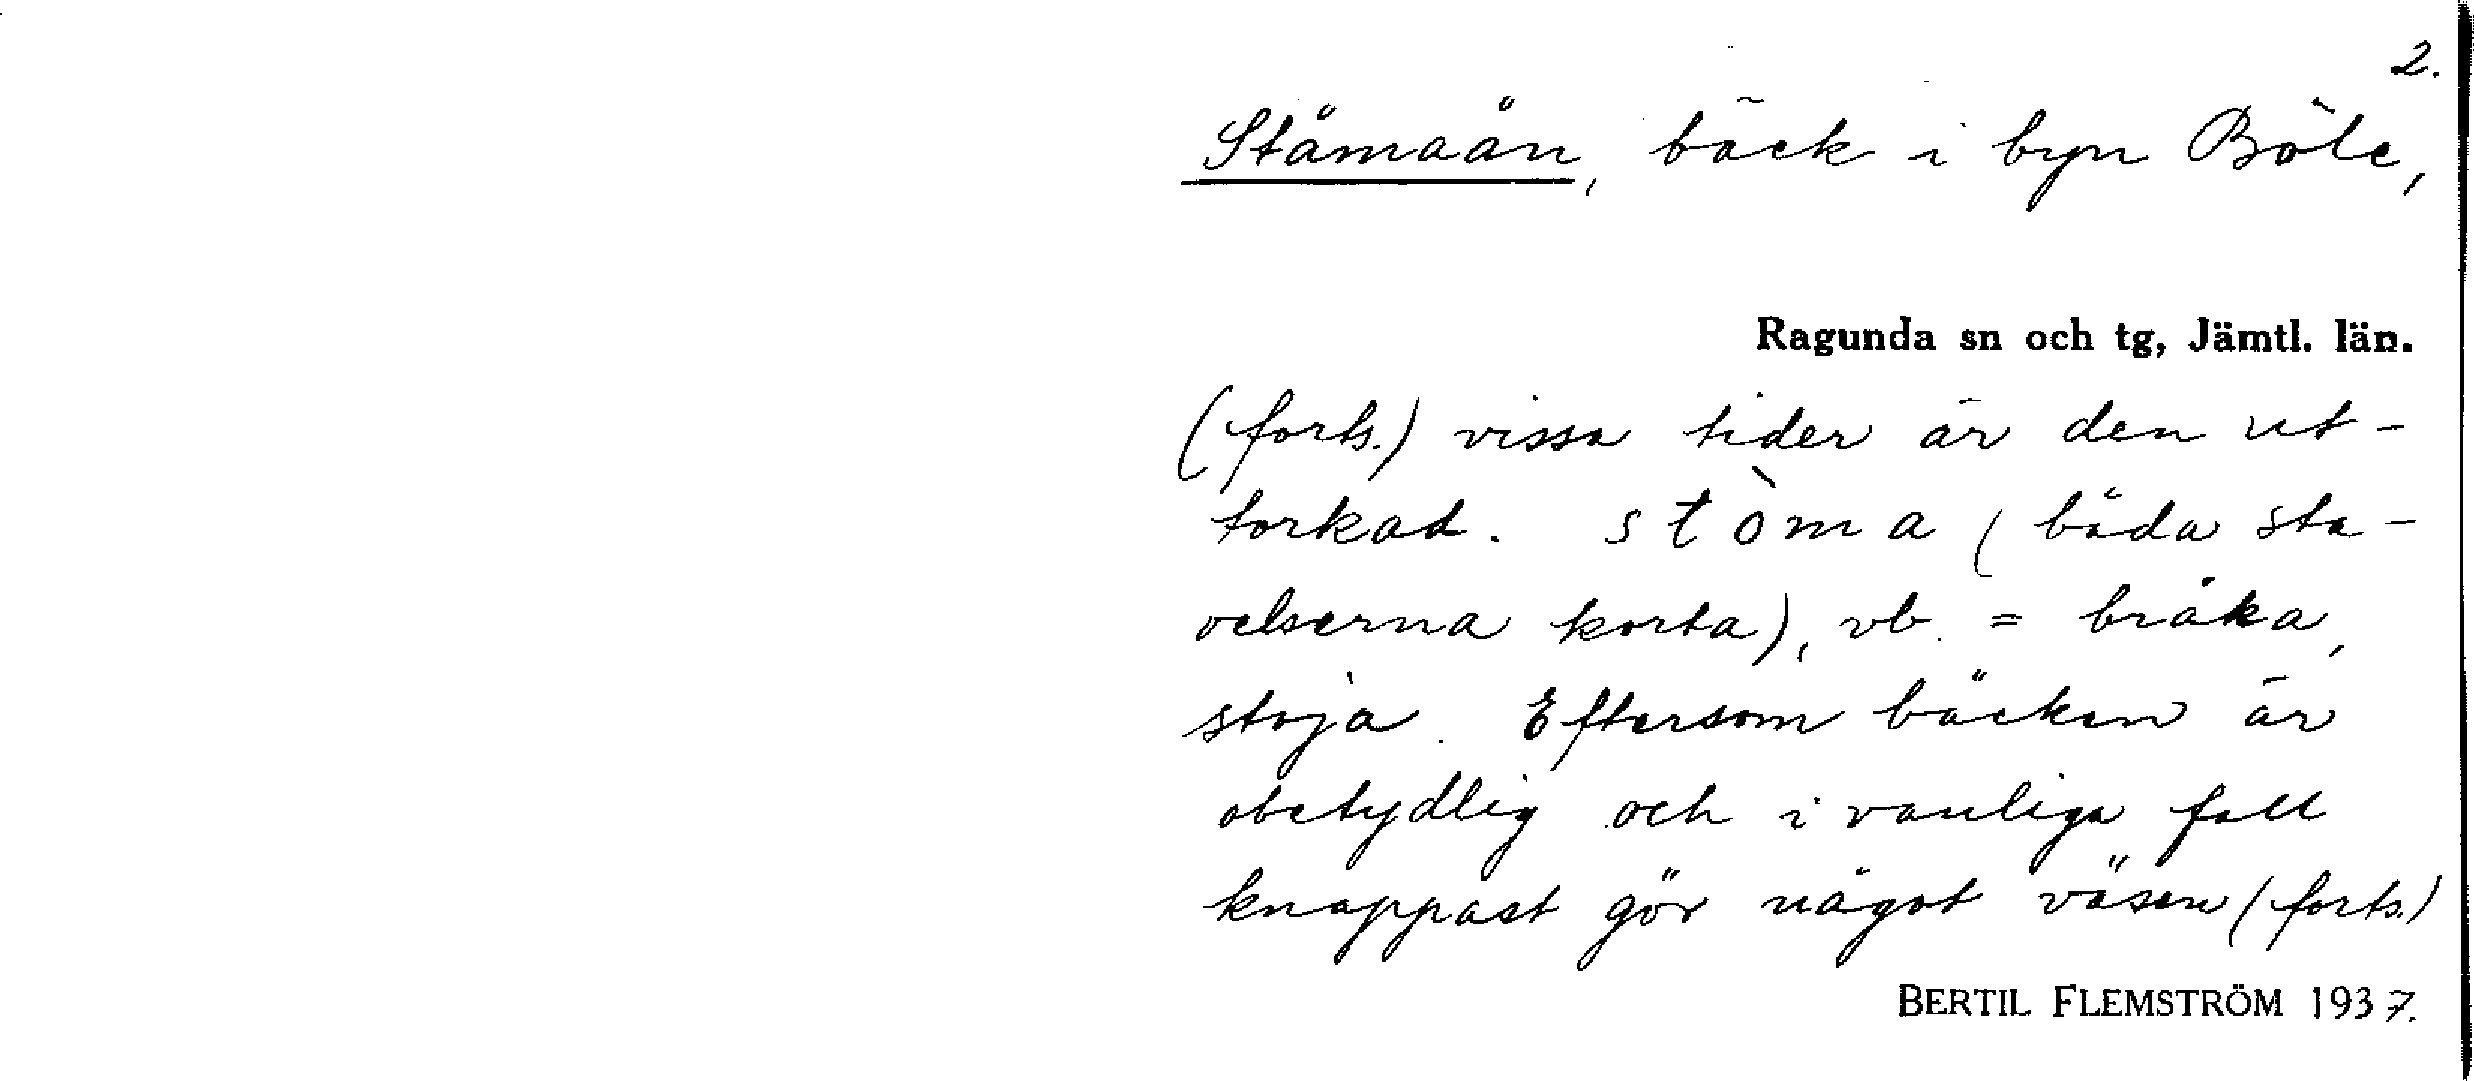 2.
Ståmaån, bäck i byn Böle,
Ragunda sn och tg, Jämtl. län.
(forts.) vissa tider är den ut-
torkad. stòma (båda sta-
velserna korta), vb. = bråka,
stoja. Eftersom bäcken är
obetydlig och i vanliga fall
knappast gör något väsen (forts.)
BERTIL FLEMSTRÖM 1937.